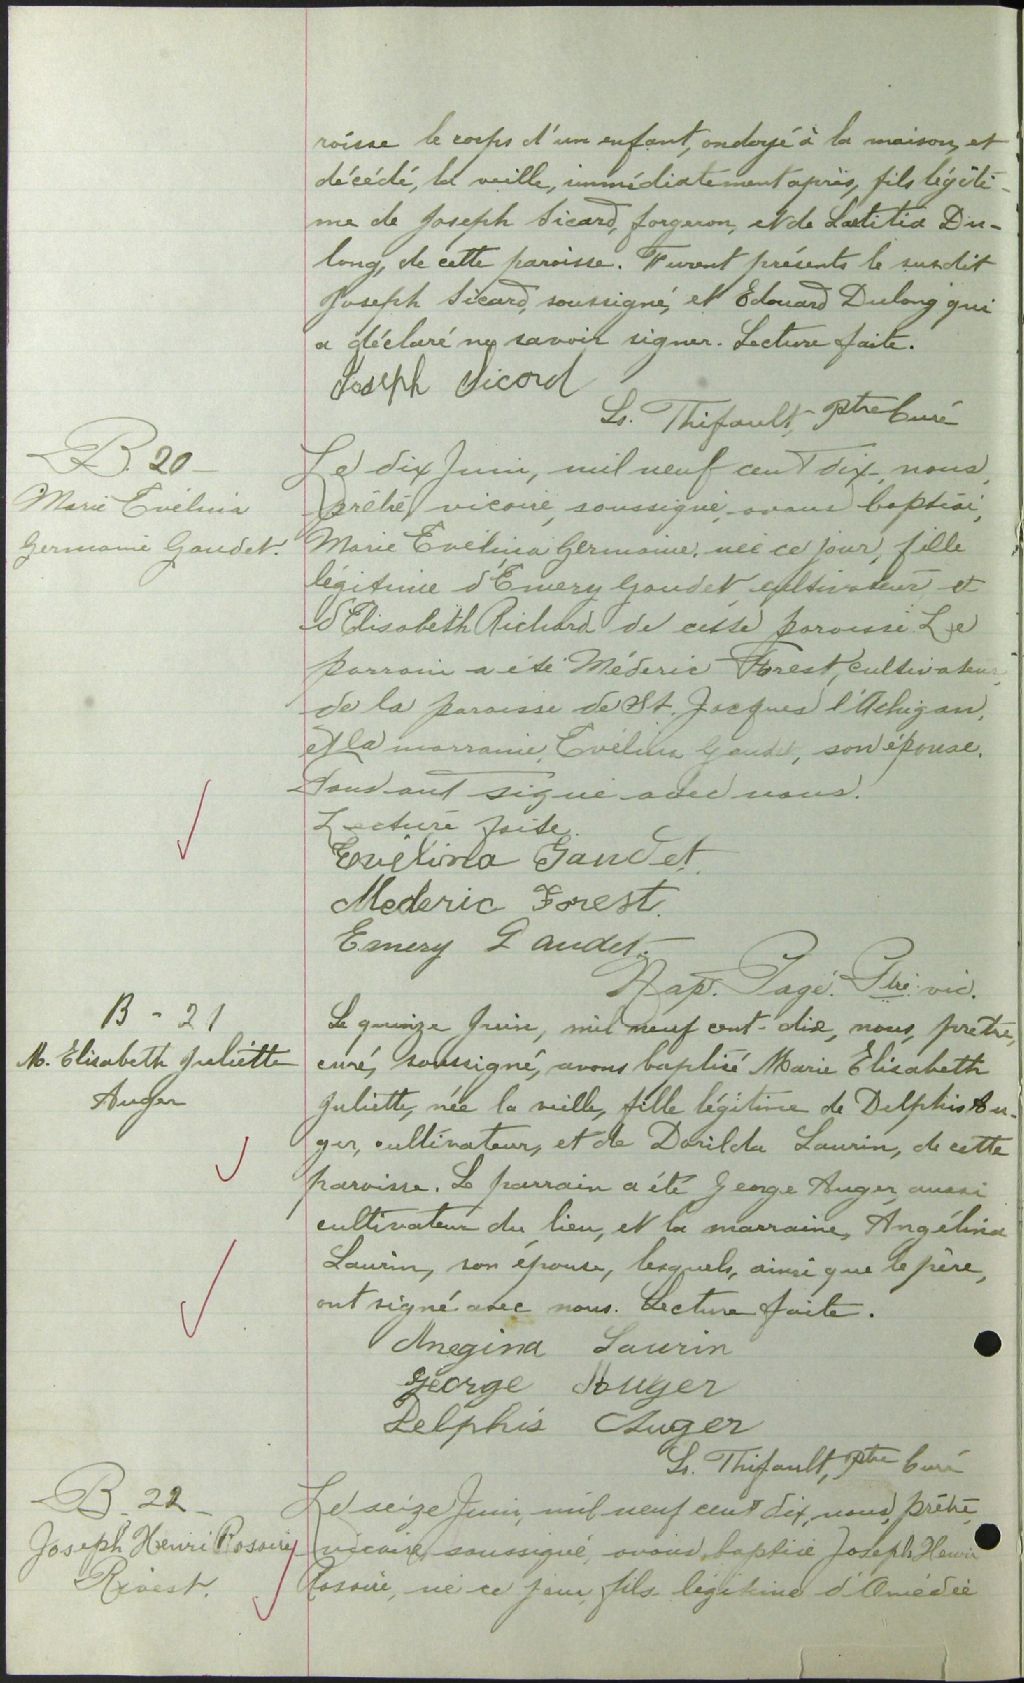 roisse le corps d'un enfant, ondoyé à la maison, et
décédé, la veille, immédiatement après, fils légiti-
me de Joseph Sicard, forgeron, et de Lætitia Du-
long, de cette paroisse. Furent présents le susdit
Joseph Sicard, soussigné, et Edouard Dulong qui
a déclaré ne savoir signer. Lecture faite.
Joseph Sicard
Ls. Thifault, Ptre Curé
B. 20
Marie Evélina
Germaine Gaudet.
Le dix Juin, mil neuf cent dix, nous,
prêtre, vicaire, soussigné, avons baptisé,
Marie Evélina Germaine, née ce jour, fille
légitime d'Emery Gaudet, cultivateur, et
d'Elisabeth Richard de cette paroisse. Le
parrain a été Méderic Forest, cultivateur,
de la paroisse de St. Jacques l'Achigan,
et la marraine, Evélina Gaudet, son épouse.
Tous ont signé avec nous.
Lecture faite.
Evélina Gaudet
Mederic Forest.
Emery Gaudet.
Nap. Pagé. Ptre vic.
B - 21
M. Elisabeth Juliette
Auger
Le quinze Juin, mil neuf cent-dix, nous, prêtre,
curé, soussigné, avons baptisé Marie Elisabeth
Juliette, née la veille, fille légitime de Delphis Au-
ger, cultivateur, et de Dorilda Laurin, de cette
paroisse. Le parrain a été George Auger, aussi
cultivateur du lieu, et la marraine, Angélina
Laurin, son épouse, lesquels, ainsi que le père,
ont signé avec nous. Lecture faite.
Anegina Laurin
George Auger
Delphis Auger
Ls. Thifault, Ptre Curé
B. 22
Joseph Henri Rosaire
Rivest.
Le seize Juin, mil neuf cent dix, nous, prêtre,
vicaire, soussigné, avons baptisé Joseph Henri
Rosaire, né ce jour, fils légitime d'Amédée